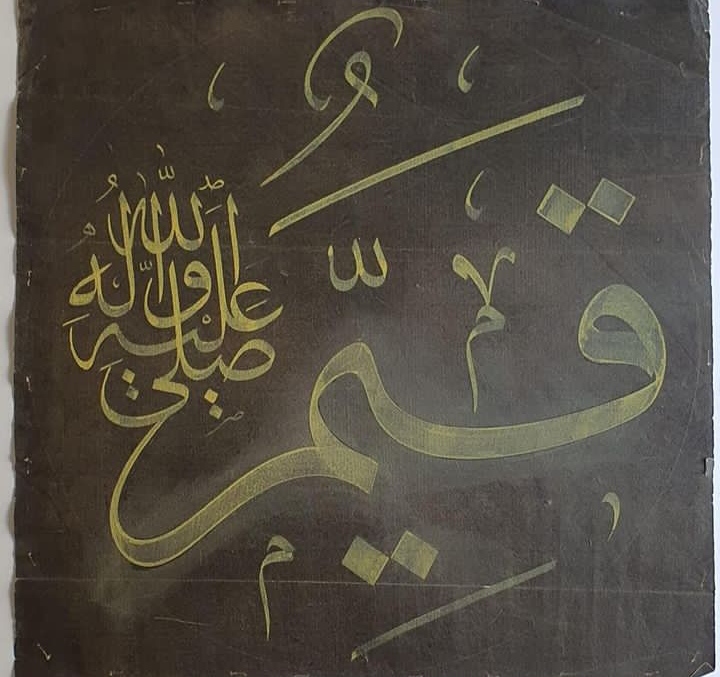 قَيِّمُ
صلى الله عليه واله